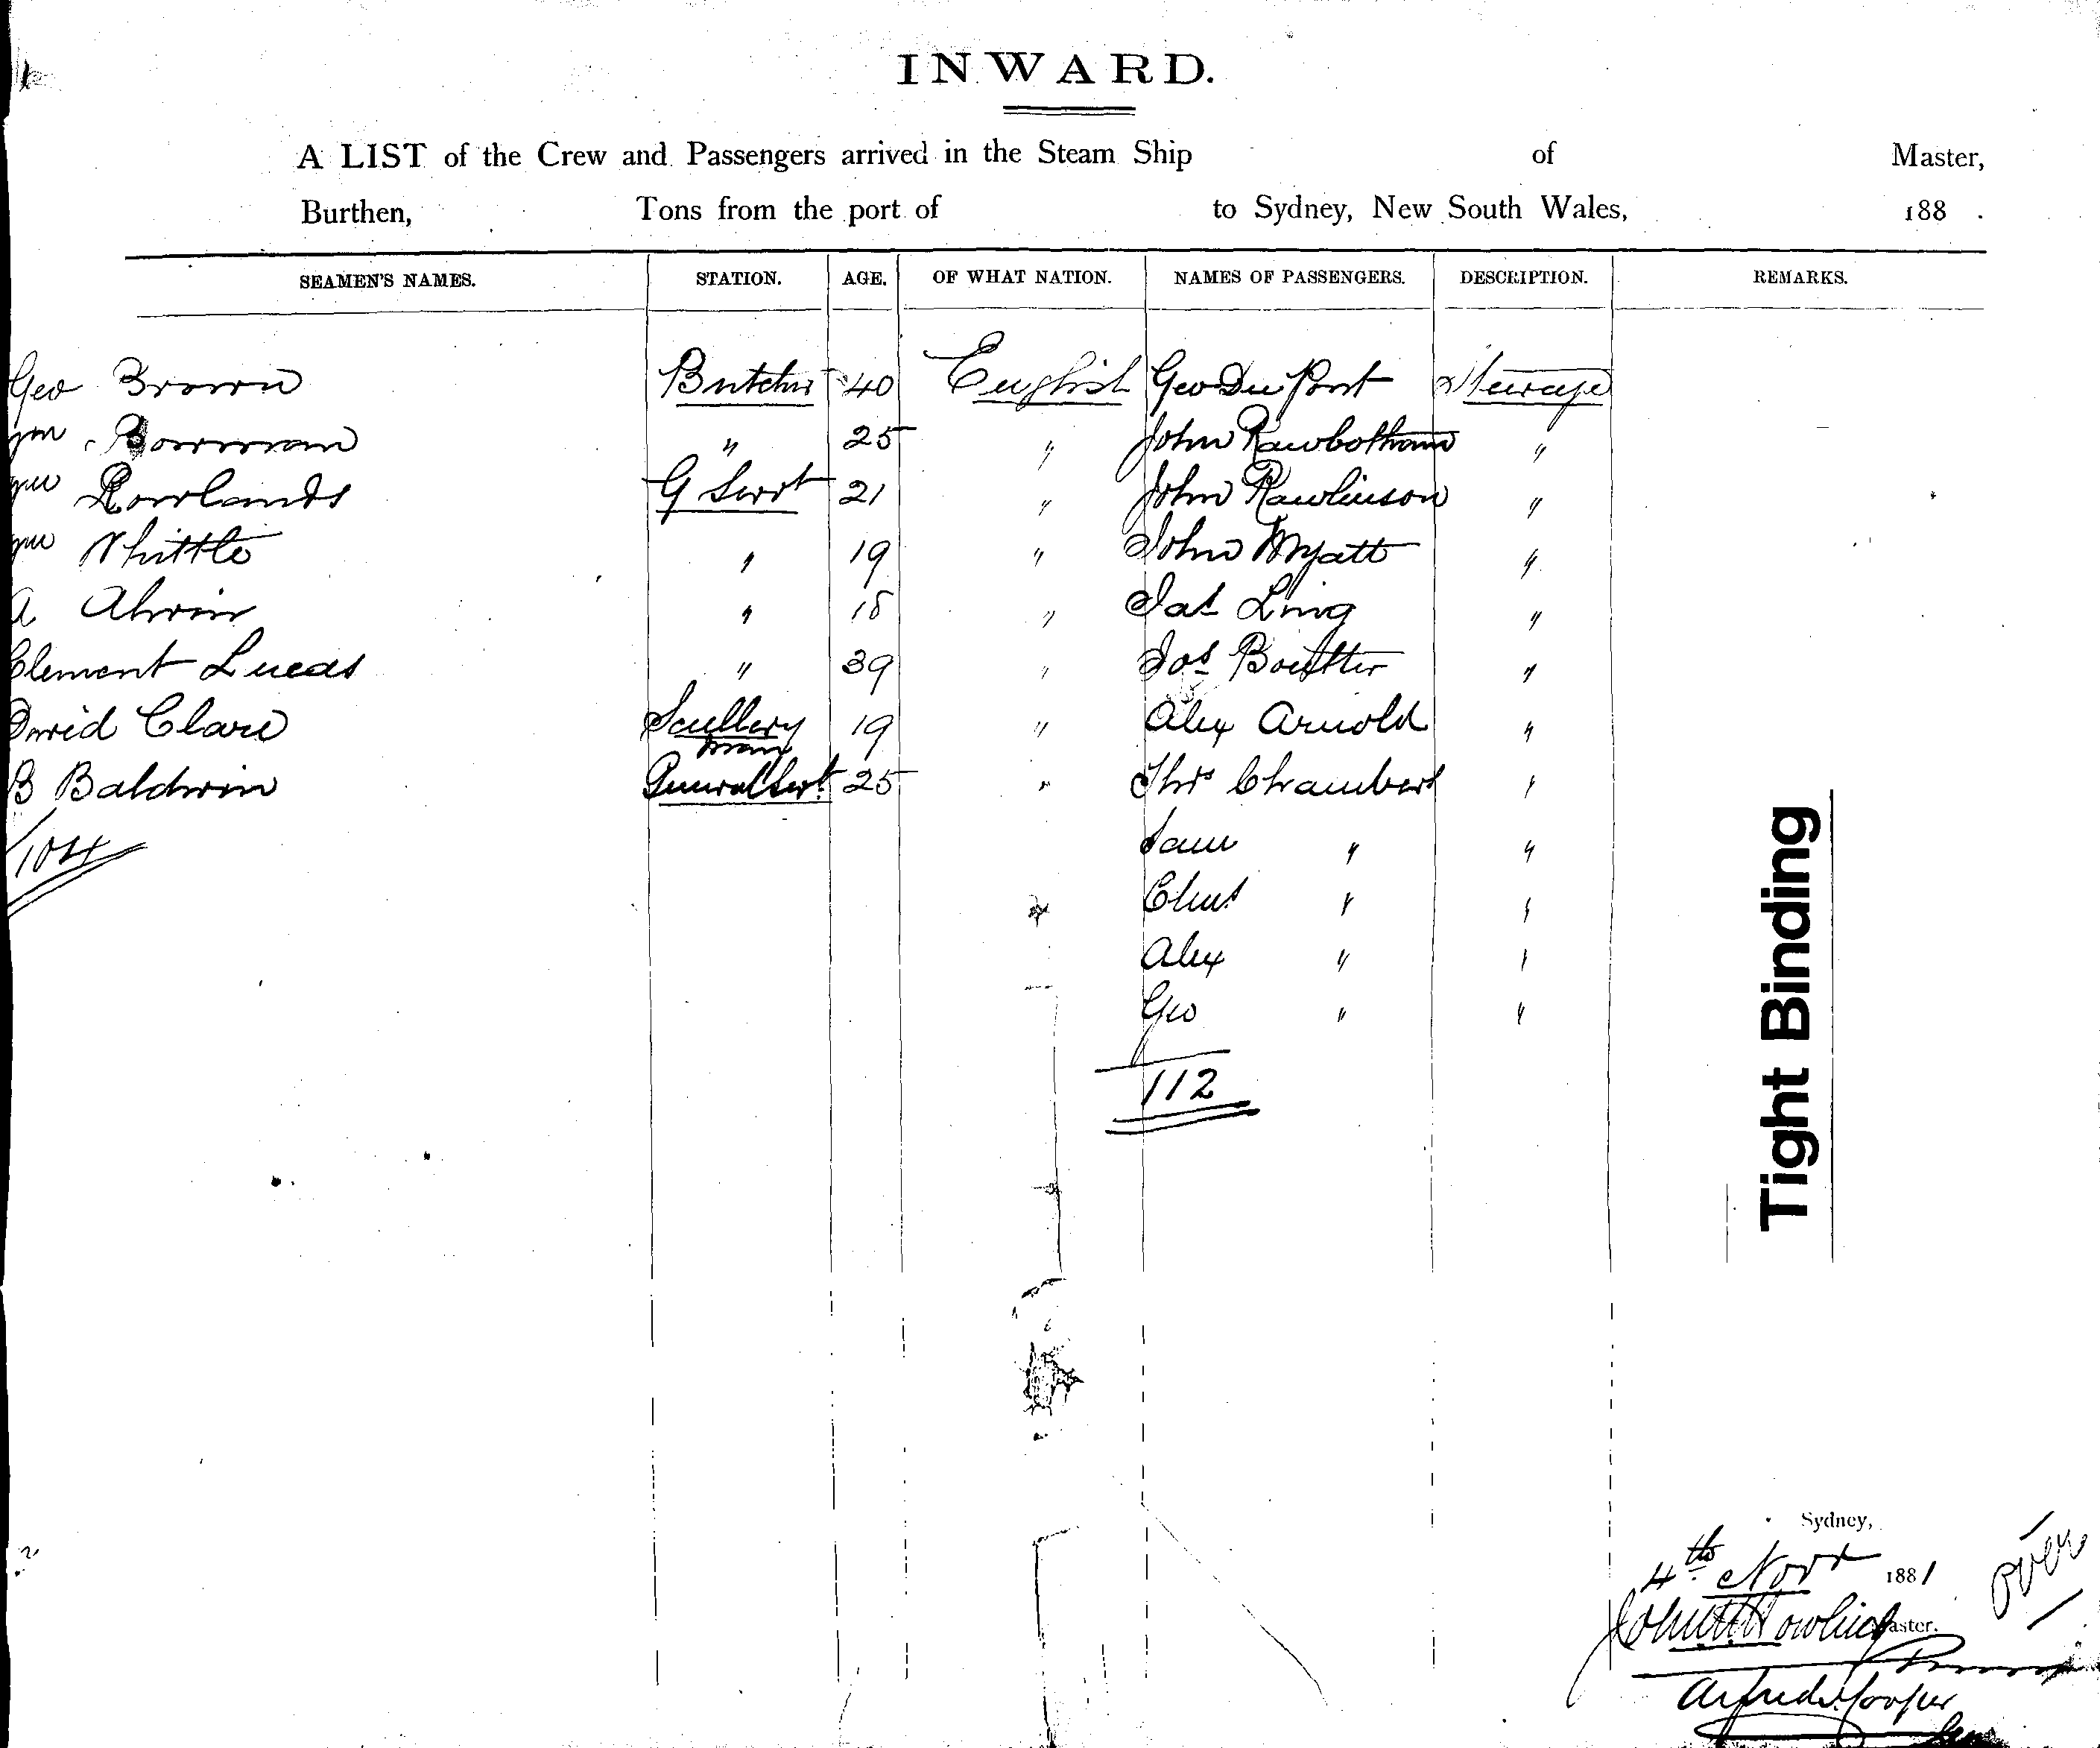 INWARD.
A LIST of the Crew and Passengers arrived in the Steam Ship of Master,
Burthen, Tons from the port of to Sydney, New South Wales, 188 .
SEAMEN'S NAMES. STATION. AGE. OF WHAT NATION. NAMES OF PASSENGERS. DESCRIPTION. REMARKS.
Geo Brown Butcher 40 English Geo Du Pont Steerage
Bowman " 25 " John Rawbotham "
Rowlands G Servt 21 " John Rawlinson "
Whittle " 19 " John Myatt "
A " 18 " Jas Ling "
Clement Lucas " 39 " Jos "
David Clare Scullery man 19 " Alex Arnold "
B Baldwin General Servt 25 " Thos Chambers "
104 Sam " "
" "
Alex " "
Geo " "
112
Tight Binding
Sydney,
4th Novr 1881
over
Master.
Alfred Cooper